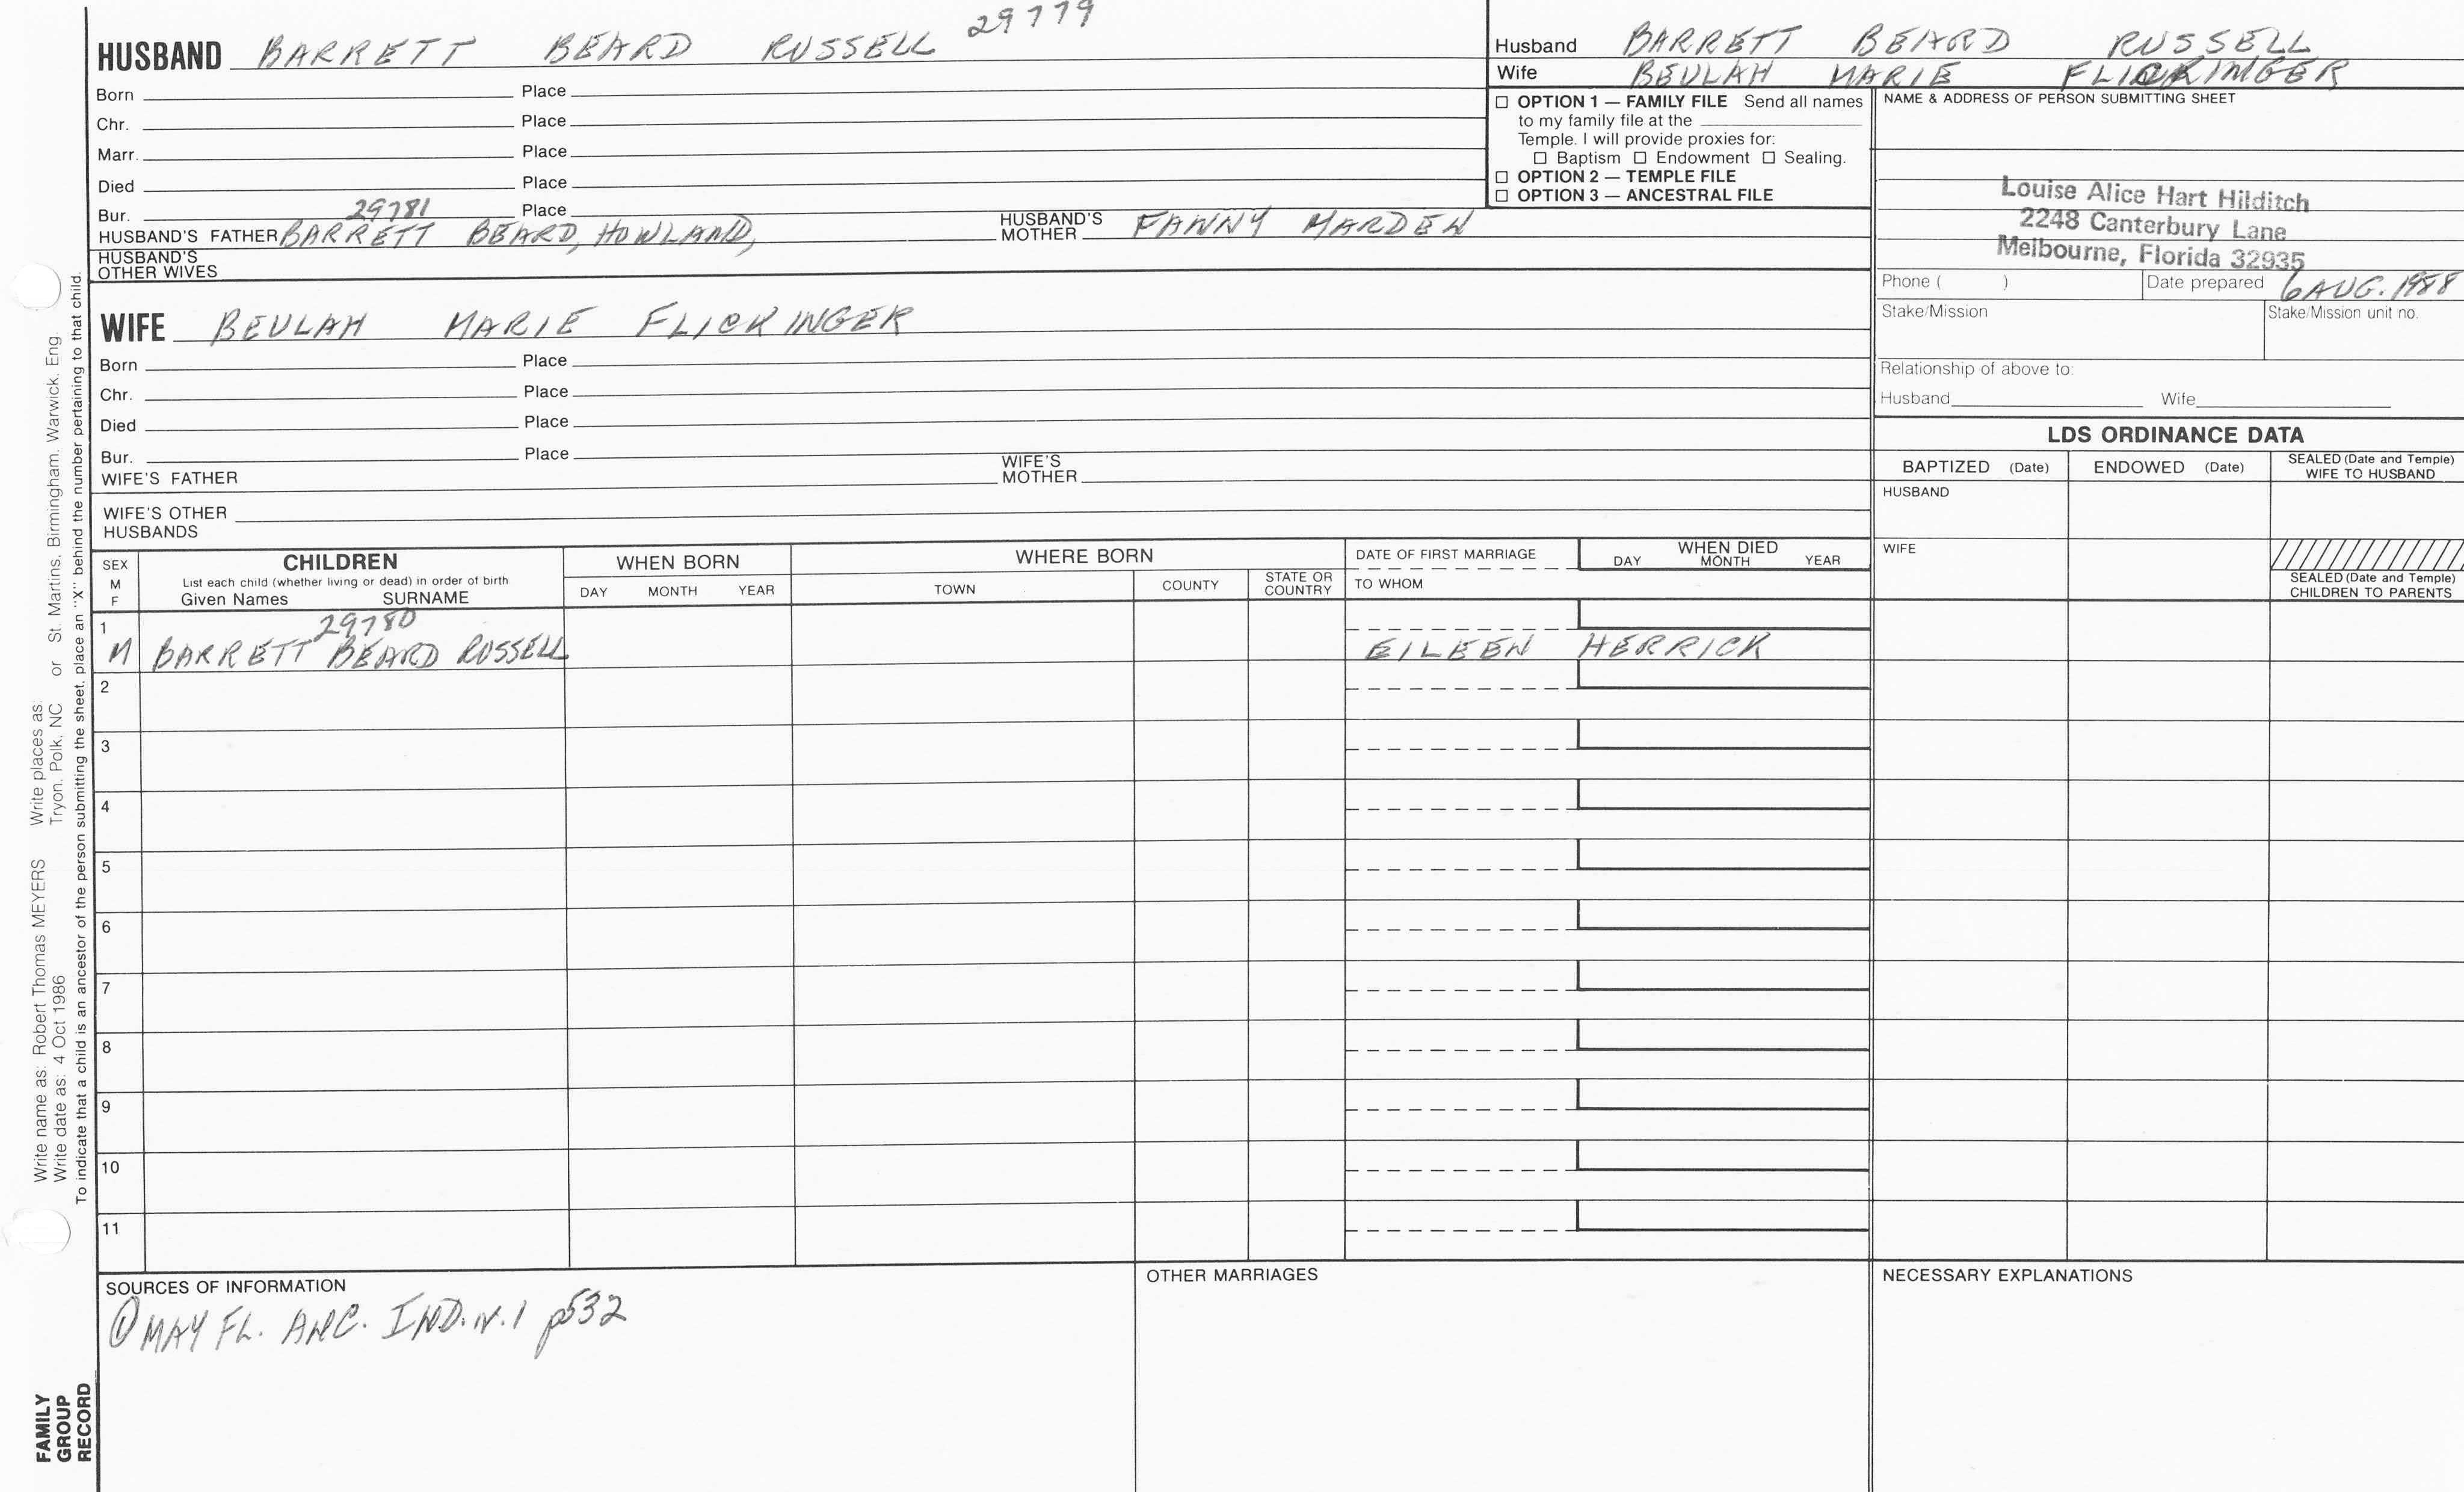 HUSBAND BARRETT BEARD RUSSELL 29779
Born Place
Chr. Place
Marr. Place
Died Place
Bur. Place
29781
HUSBAND'S FATHER BARRETT BEARD, HOWLAND, HUSBAND'S MOTHER FANNY MARDEN
HUSBAND'S OTHER WIVES
Husband BARRETT BEARD RUSSELL
Wife BEULAH MARIE FLICKINGER
☐ OPTION 1 — FAMILY FILE Send all names
to my family file at the
Temple. I will provide proxies for:
☐ Baptism ☐ Endowment ☐ Sealing.
☐ OPTION 2 — TEMPLE FILE
☐ OPTION 3 — ANCESTRAL FILE
NAME & ADDRESS OF PERSON SUBMITTING SHEET
Louise Alice Hart Hilditch
2248 Canterbury Lane
Melbourne, Florida 32935
Phone ( ) Date prepared 6 AUG. 1988
Stake/Mission Stake/Mission unit no.
Relationship of above to:
Husband Wife
WIFE BEULAH MARIE FLICKINGER
Born Place
Chr. Place
Died Place
Bur. Place
WIFE'S FATHER WIFE'S MOTHER
WIFE'S OTHER HUSBANDS
LDS ORDINANCE DATA
BAPTIZED (Date) ENDOWED (Date) SEALED (Date and Temple) WIFE TO HUSBAND
HUSBAND
WIFE
SEALED (Date and Temple) CHILDREN TO PARENTS
SEX M F
CHILDREN
List each child (whether living or dead) in order of birth
Given Names SURNAME
WHEN BORN
DAY MONTH YEAR
WHERE BORN
TOWN COUNTY STATE OR COUNTRY
DATE OF FIRST MARRIAGE
TO WHOM
WHEN DIED
DAY MONTH YEAR
1 29780
M BARRETT BEARD RUSSELL EILEEN HERRICK
2
3
4
5
6
7
8
9
10
11
SOURCES OF INFORMATION
① MAY FL. ANC. IND. V. 1 p532
OTHER MARRIAGES
NECESSARY EXPLANATIONS
Write name as: Robert Thomas MEYERS Write places as:
Write date as: 4 Oct 1986 Tryon, Polk, NC or St. Martins, Birmingham, Warwick, Eng.
To indicate that a child is an ancestor of the person submitting the sheet, place an "X" behind the number pertaining to that child.
FAMILY
GROUP
RECORD